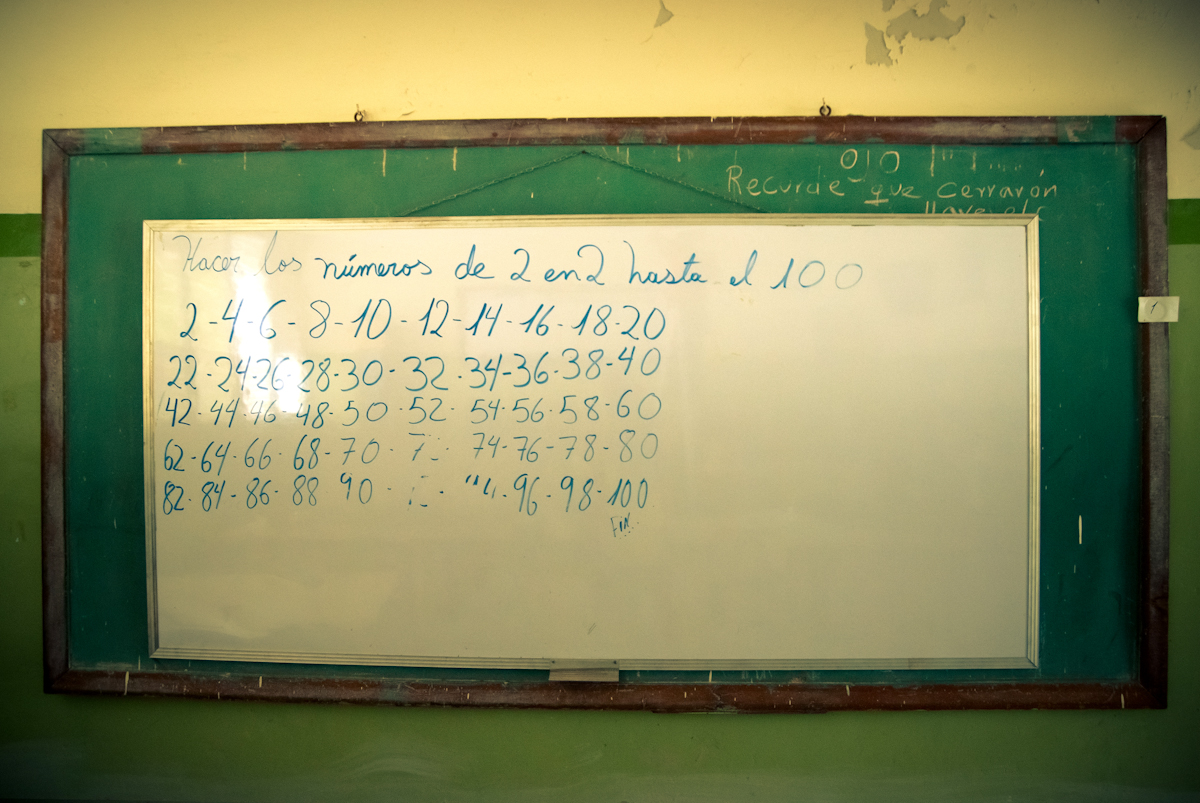 OJO
Recuerde que cerrarón
llave
Hacer los números de 2 en 2 hasta el 100
2-4-6-8-10-12-14-16-18-20
22-24-26-28-30-32-34-36-38-40
42-44-46-48-50-52-54-56-58-60
62-64-66-68-70-7 - 74-76-78-80
82-84-86-88 90 - - 96-98-100
FIN
1